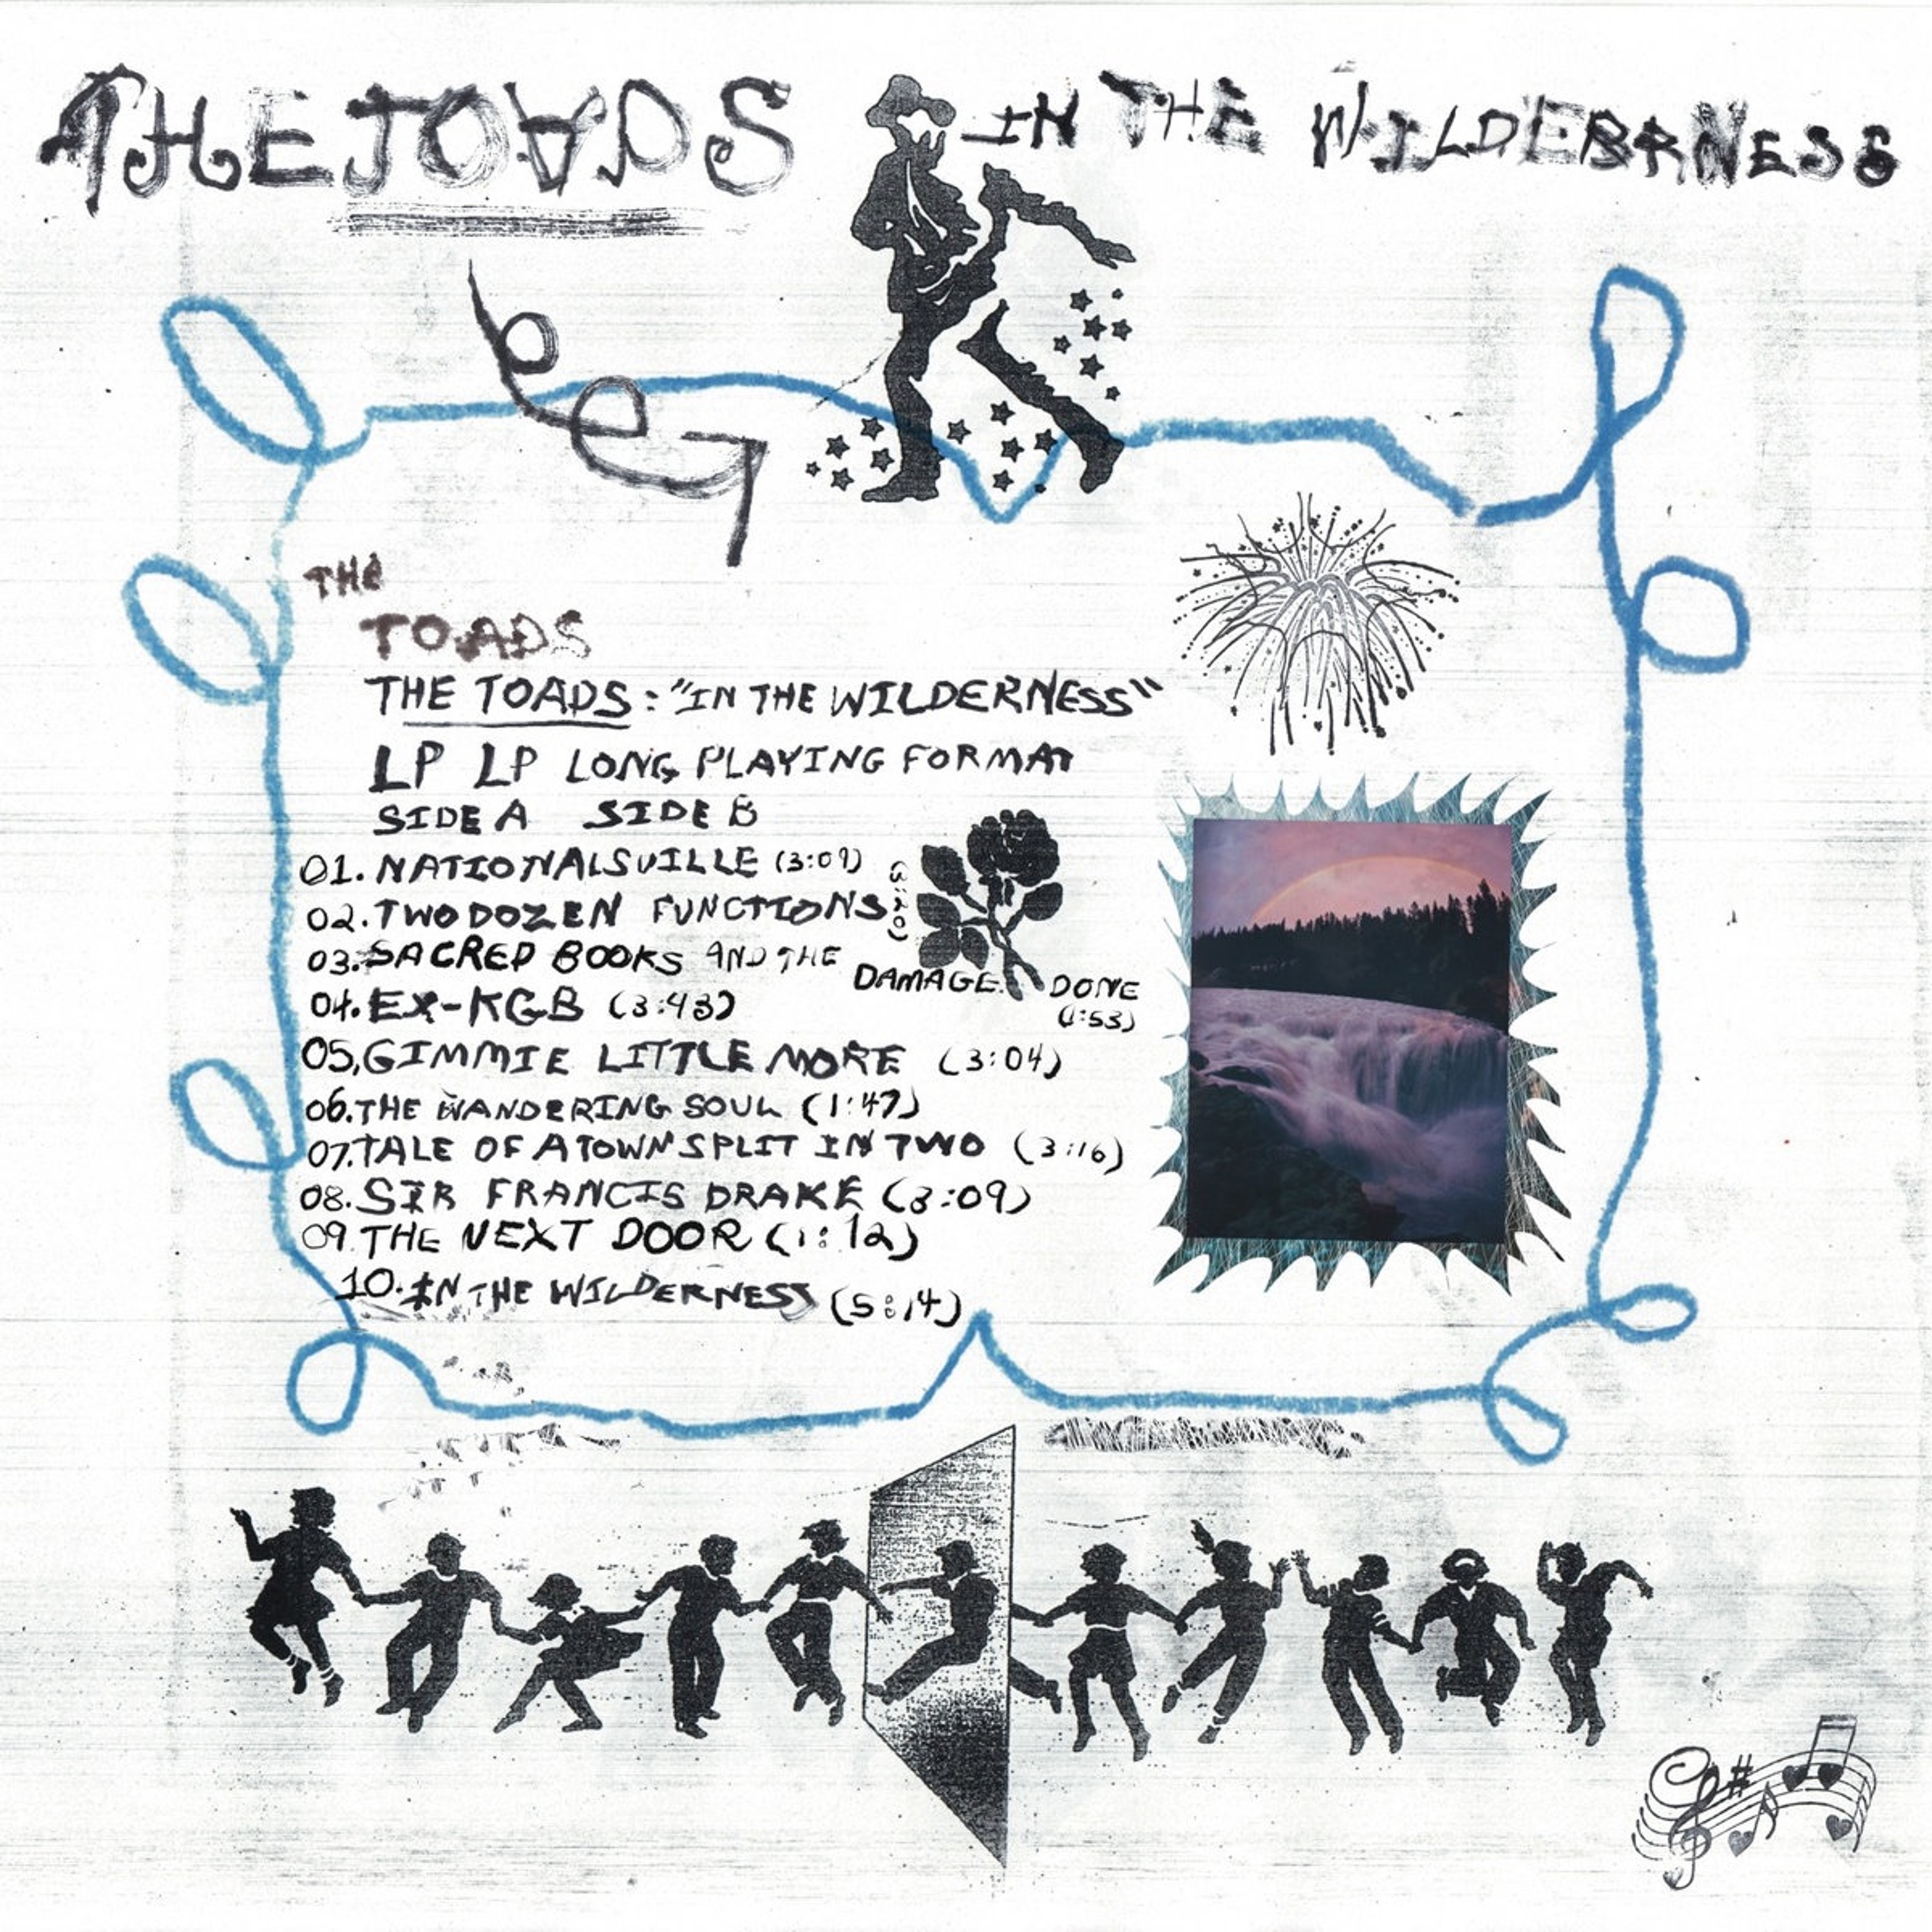 THE TOADS
IN THE WILDERNESS
THE
TOADS
THE TOADS: "IN THE WILDERNESS"
LP LP LONG PLAYING FORMAT
SIDE A SIDE B
01. NATIONALSVILLE (3:09)
02. TWO DOZEN FUNCTIONS (3:20)
03. SACRED BOOKS AND THE DAMAGE DONE (1:53)
04. EX-KGB (3:43)
05. GIMMIE LITTLE MORE (3:04)
06. THE WANDERING SOUL (1:47)
07. TALE OF A TOWN SPLIT IN TWO (3:16)
08. SIR FRANCIS DRAKE (3:09)
09. THE NEXT DOOR (1:12)
10. IN THE WILDERNESS (5:14)